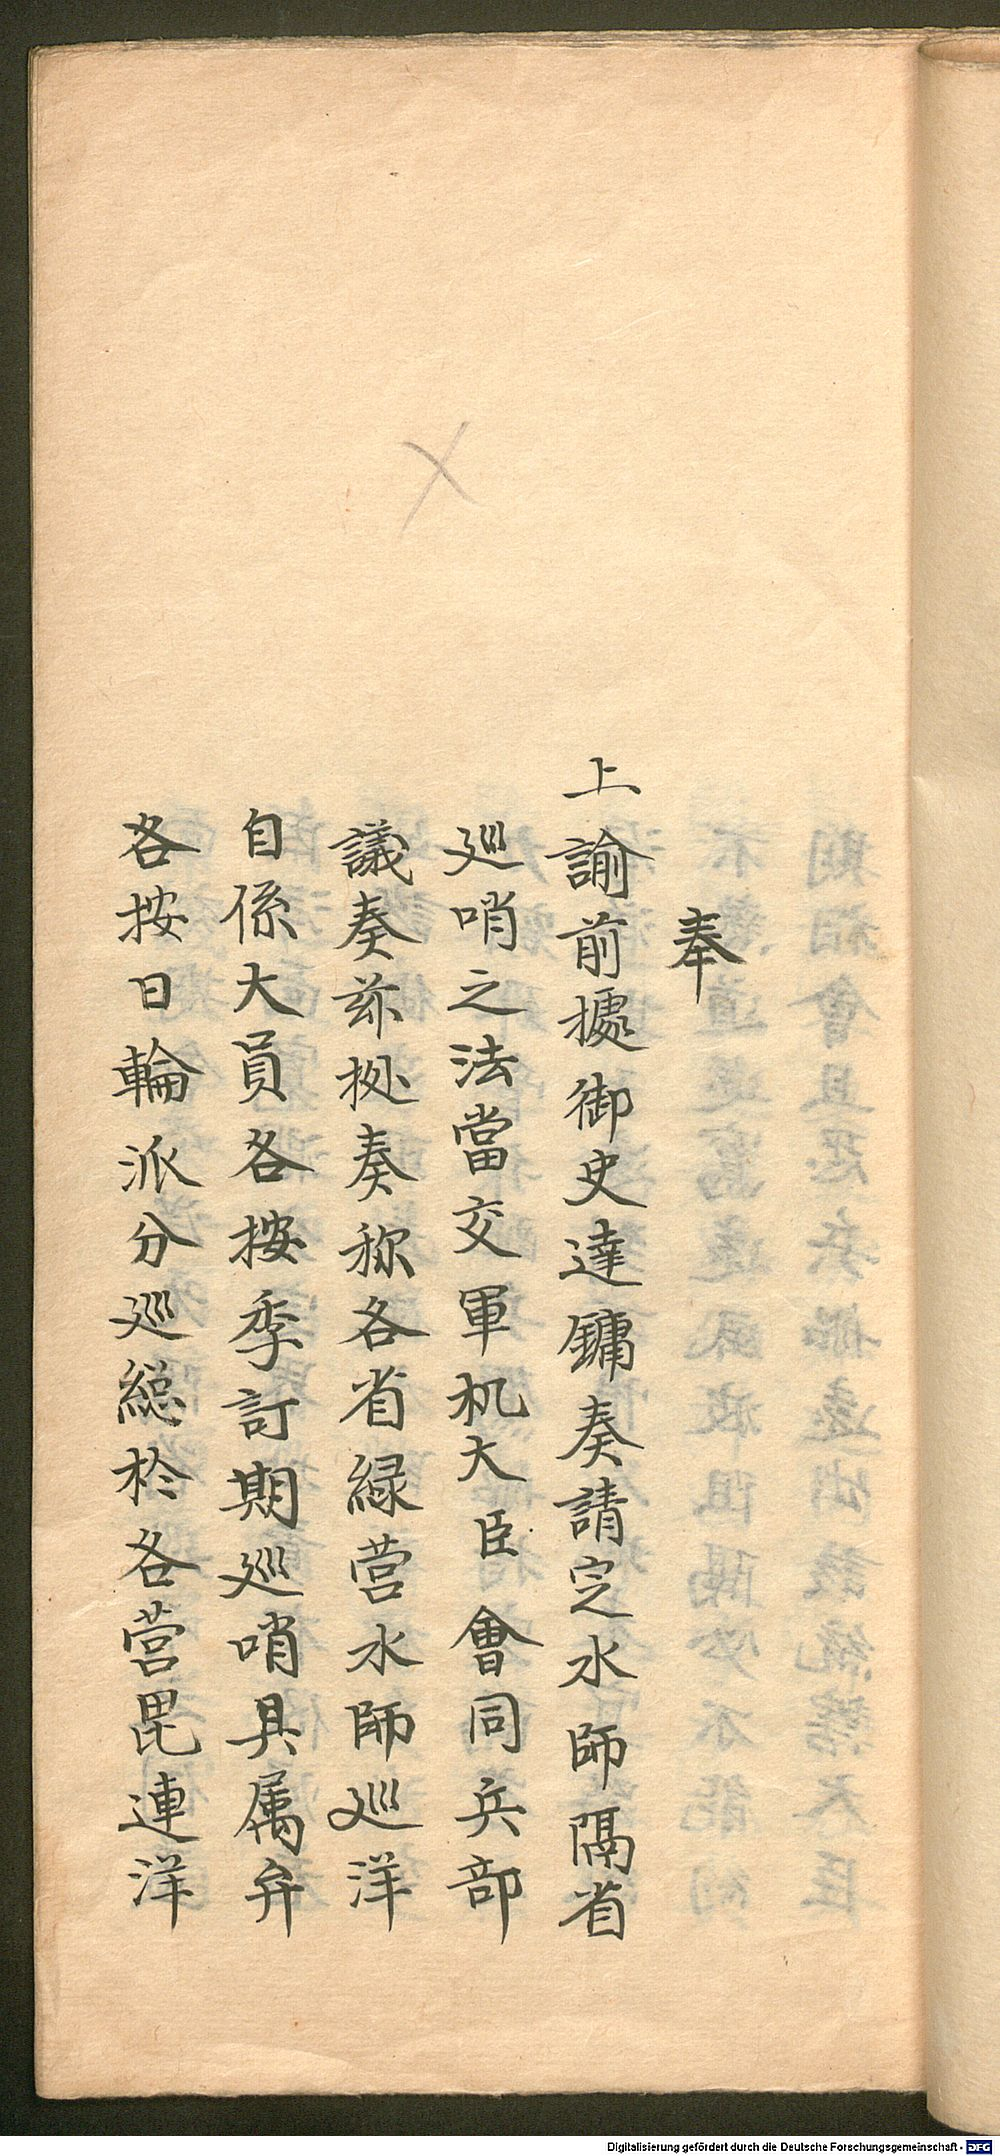 奉
上諭前據御史達鏞奏請定水師隔省
巡哨之法當交軍机大臣會同兵部
議奏茲拠奏称各省緑营水師巡洋
自係大員各按季訂期巡哨具属弁
各按日輪派分巡総於各营毘連洋
Digitalisierung gefördert durch die Deutsche Forschungsgemeinschaft - DFG